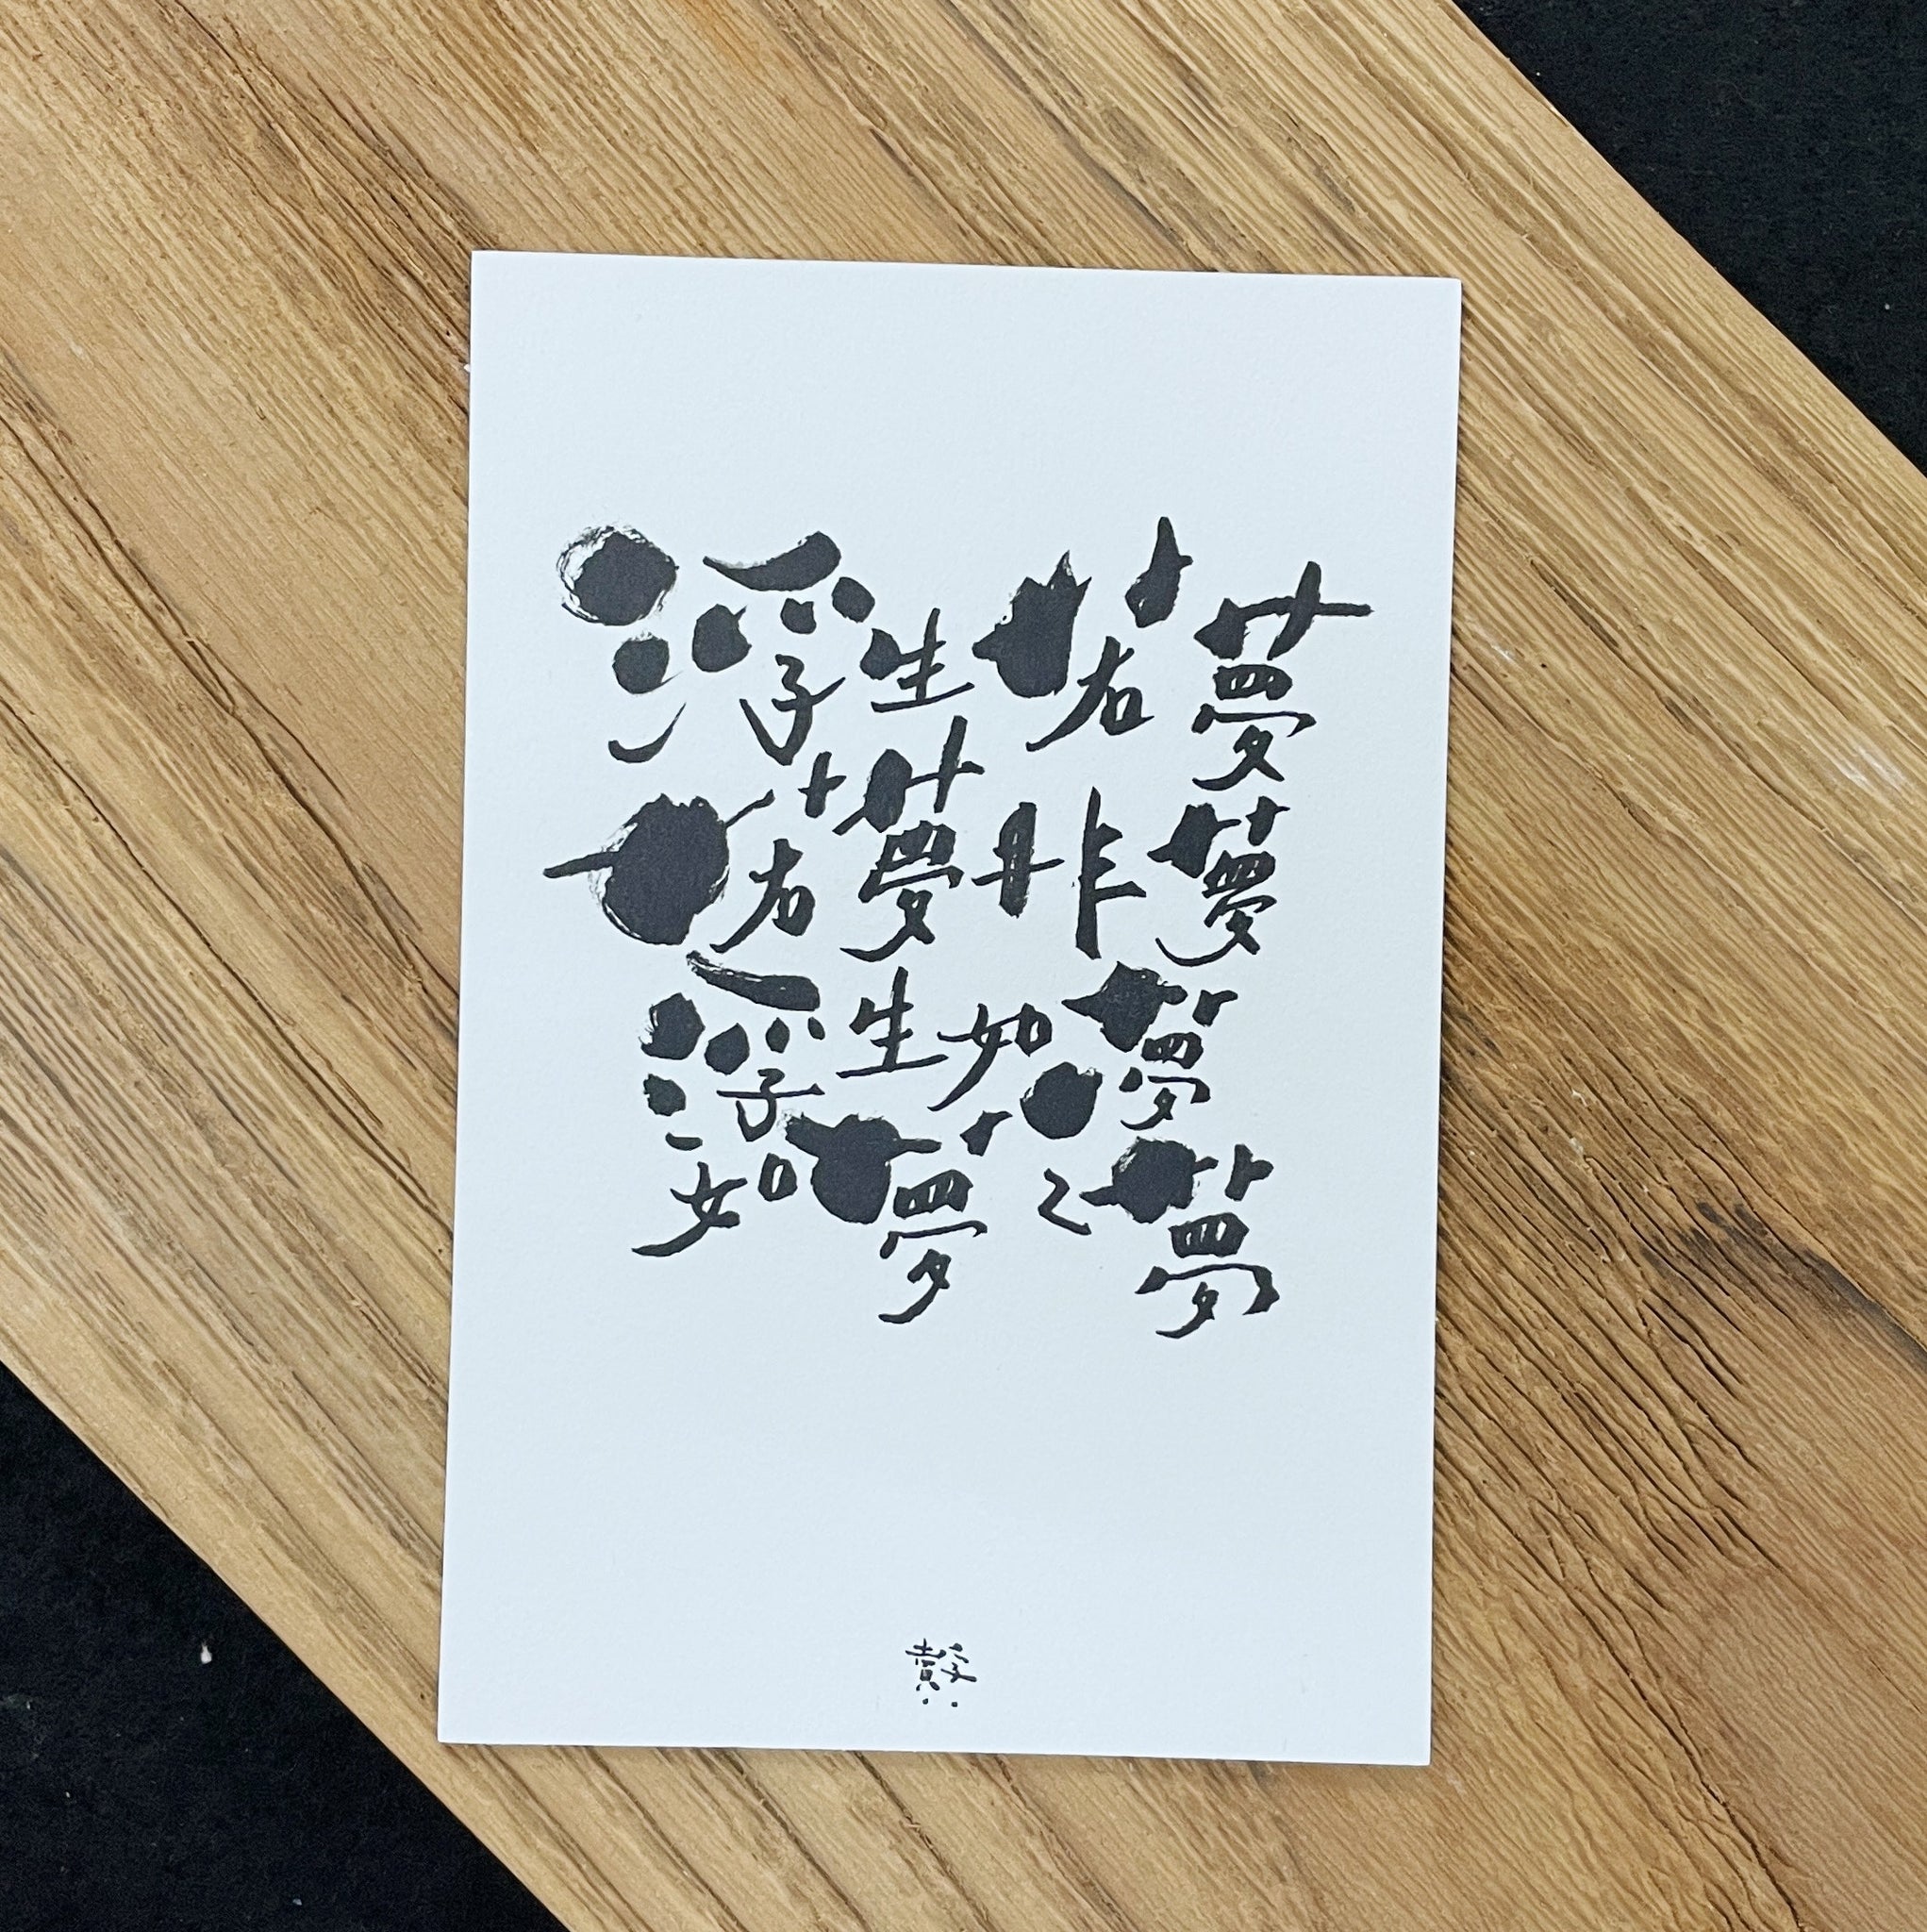 浮生若夢
若夢非夢
浮生如夢
如夢之夢